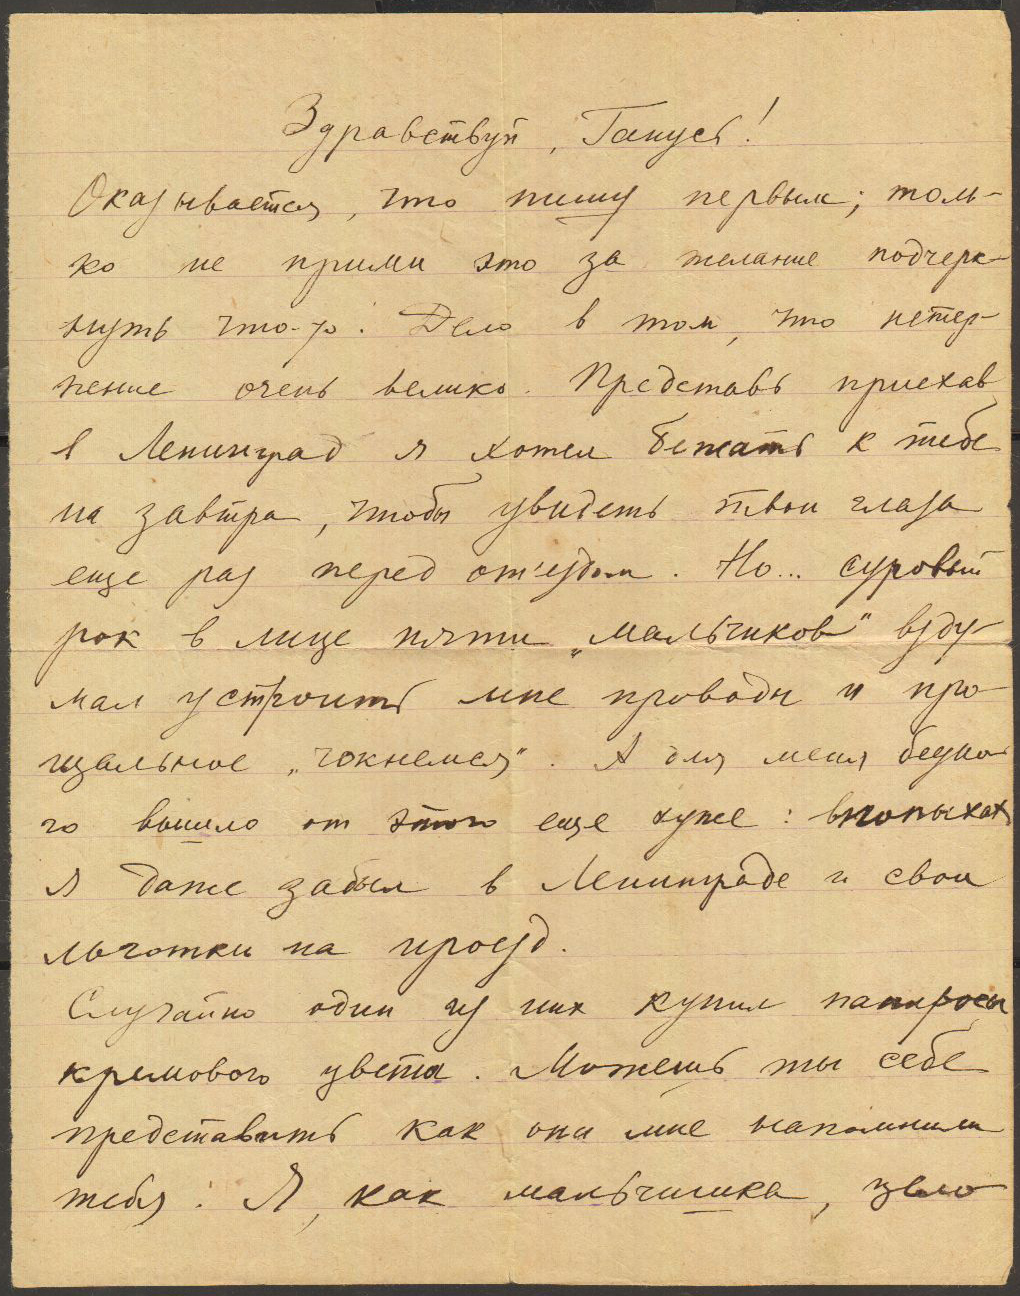 Здравствуй, Гануся!
Оказывается, что пишу первым; толь-
ко не прими это за желание подчерк-
нуть что-то. Дело в том, что нетер-
пение очень велико. Представь приехав
в Ленинград я хотел бежать к тебе
на завтра, чтобы увидеть твои глаза
еще раз перед от'ездом. Но... суровый
рок в лице пяти „мальчиков" взду-
мал устроить мне проводы и про-
щальное „чокнемся". А для меня бедно-
го вышло от этого еще хуже: впопыхах
я даже забыл в Ленинграде и свои
льготки на проезд.
Случайно один из них купил папиросы
кремового цвета. Можешь ты себе
представить как они мне напомнили
тебя. Я, как мальчишка, цело